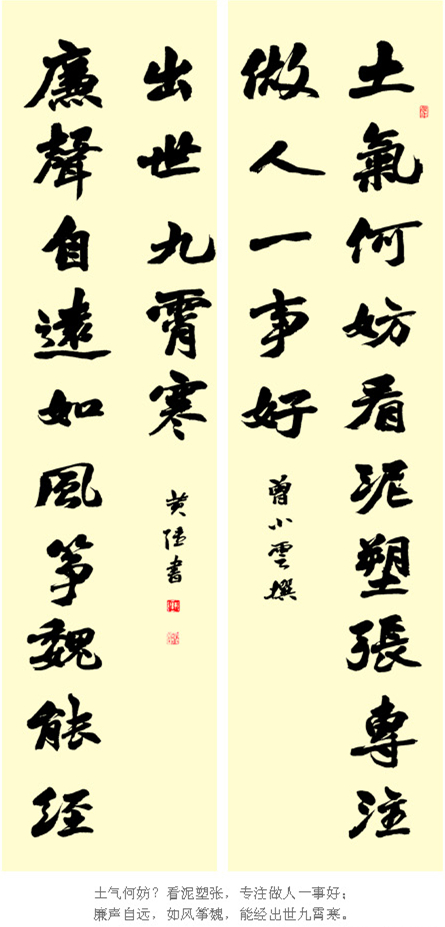 土氣何妨看泥塑張專注
做人一事好
曾小雲撰
廉聲自遠如風筝魏能经
出世九霄寒
黄陸書
土气何妨？看泥塑张，专注做人一事好；
廉声自远，如风筝魏，能经出世九霄寒。